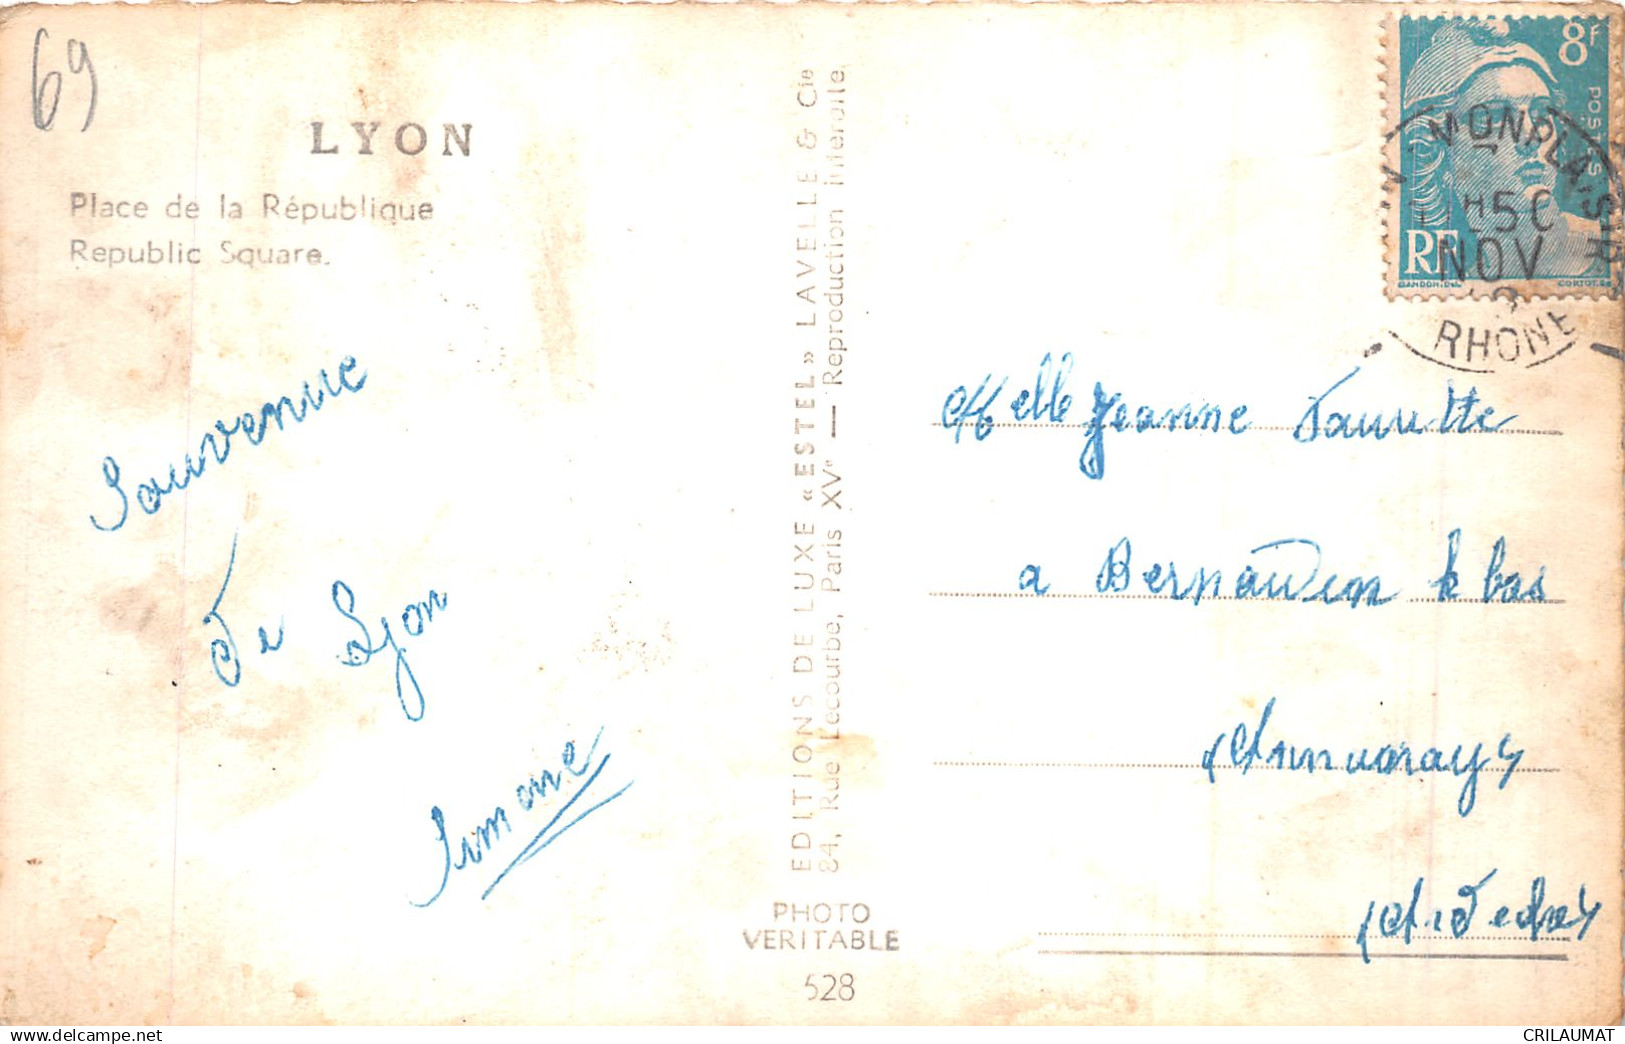 69
LYON
Place de la République
Republic Square.
Souvenue
De Lyon
Simone
EDITIONS DE LUXE «ESTEL» LAVELLE & Cie
84, Rue Lecourbe, Paris XVe — Reproduction interdite
PHOTO
VERITABLE
528
8f
POSTES
RF
GANDON.DEL
CORTOT.SC
MONPLAISIR
H50
NOV
RHONE
Melle Jeanne
a Bernaudin le bas
(Annonay)
(Ardeche)
www.delcampe.net
CRILAUMAT